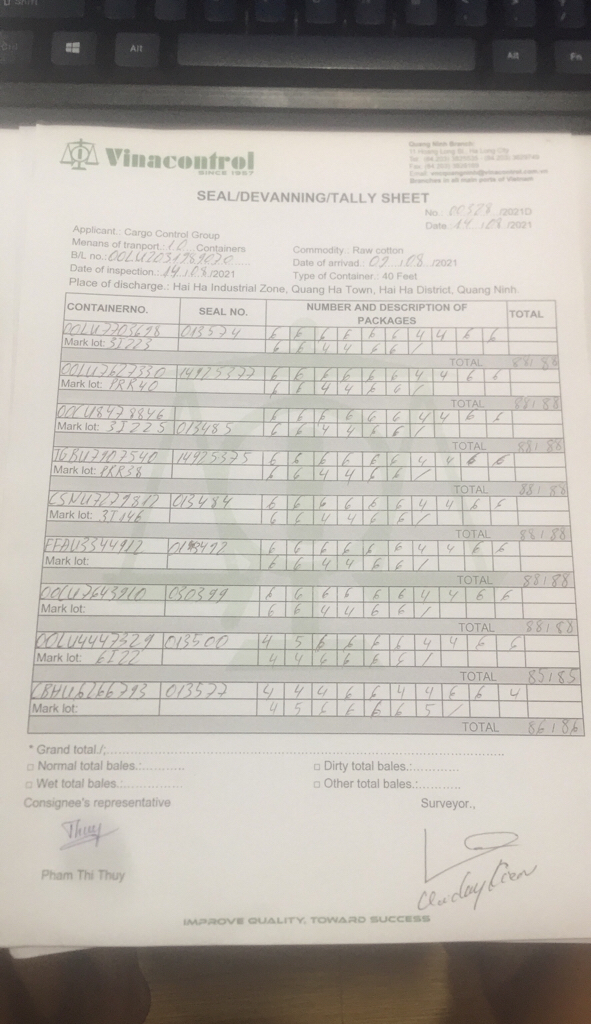 Alt
Alt
Fn
Vinacontrol
SINCE 1957
Quang Ninh Branch:
Branches in all main ports of Vietnam
SEAL/DEVANNING/TALLY SHEET
No.: 00528 /2021D
Date: 14 / 08 /2021
Applicant.: Cargo Control Group
Menans of tranport.: 10 Containers
Commodity.: Raw cotton
B/L no.: OOLU2031989020
Date of arrivad.: 09 / 08 /2021
Date of inspection.: 14 / 08 /2021
Type of Container.: 40 Feet
Place of discharge.: Hai Ha Industrial Zone, Quang Ha Town, Hai Ha District, Quang Ninh.
CONTAINERNO. SEAL NO. NUMBER AND DESCRIPTION OF PACKAGES TOTAL
OOLU7703698 013574 6 6 6 6 6 6 4 4 6 6
Mark lot: 3I223 6 6 4 4 6 6 /
TOTAL 88/88
OOLU7627330 14925377 6 6 6 6 6 6 4 4 6 6
Mark lot: PRR40 6 6 4 4 6 6 /
TOTAL 88/88
OOCU8478846 6 6 6 6 6 6 4 4 6 6
Mark lot: 3I225 013485 6 6 4 4 6 6 /
TOTAL 88/88
TGBU7907540 14925375 6 6 6 6 6 6 4 4 6 6
Mark lot: PRR38 6 6 4 4 6 6 /
TOTAL 88/88
CSNU7279817 013484 6 6 6 6 6 6 4 4 6 6
Mark lot: 3I146 6 6 4 4 6 6 /
TOTAL 88/88
FFAU3344912 013492 6 6 6 6 6 6 4 4 6 6
Mark lot: 6 6 4 4 6 6 /
TOTAL 88/88
OOCU7643910 030399 6 6 6 6 6 6 4 4 6 6
Mark lot: 6 6 4 4 6 6 /
TOTAL 88/88
OOLU4447329 013500 4 5 6 6 6 6 4 4 6 6
Mark lot: 6I22 4 4 6 6 6 6 /
TOTAL 85/85
CBHU6266793 013577 4 4 4 6 6 4 4 6 6 4
Mark lot: 4 5 6 6 6 6 5 /
TOTAL 86/86
* Grand total./:
Normal total bales.:
Dirty total bales.:
Wet total bales.:
Other total bales.:
Consignee's representative
Surveyor.,
Thuy
Pham Thi Thuy
IMPROVE QUALITY, TOWARD SUCCESS